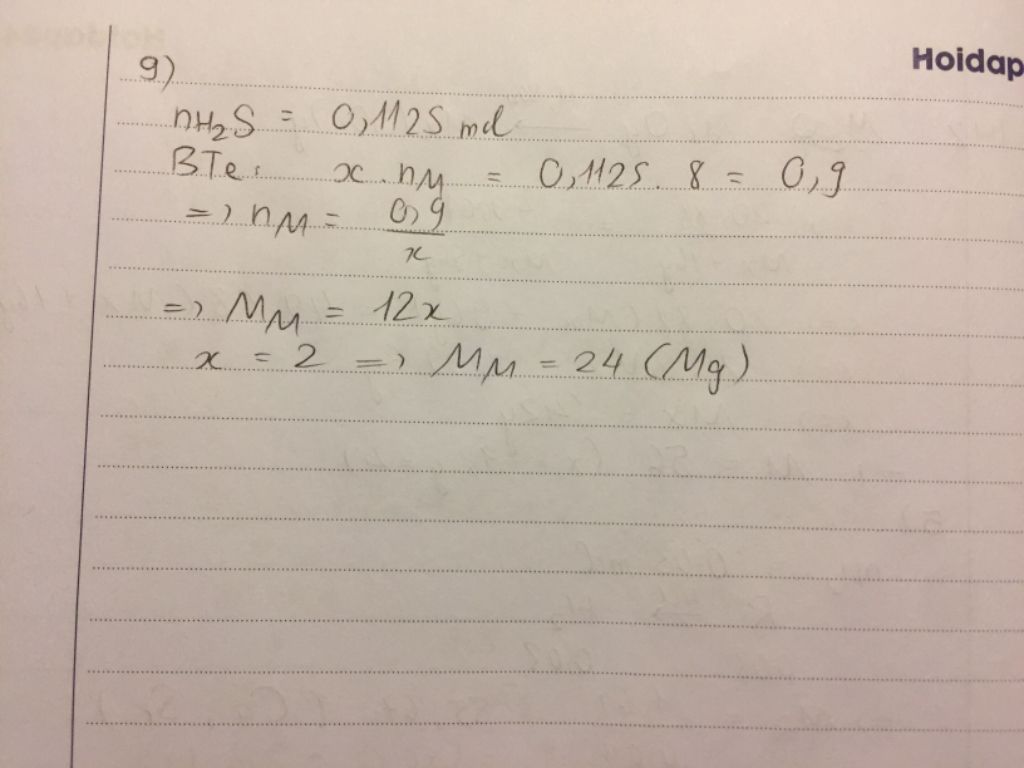 Hoidap
9)
nH₂S = 0,1125 mol
BTe: x.nM = 0,1125.8 = 0,9
=> nM = 0,9/x
=> MM = 12x
x = 2 => MM = 24 (Mg)